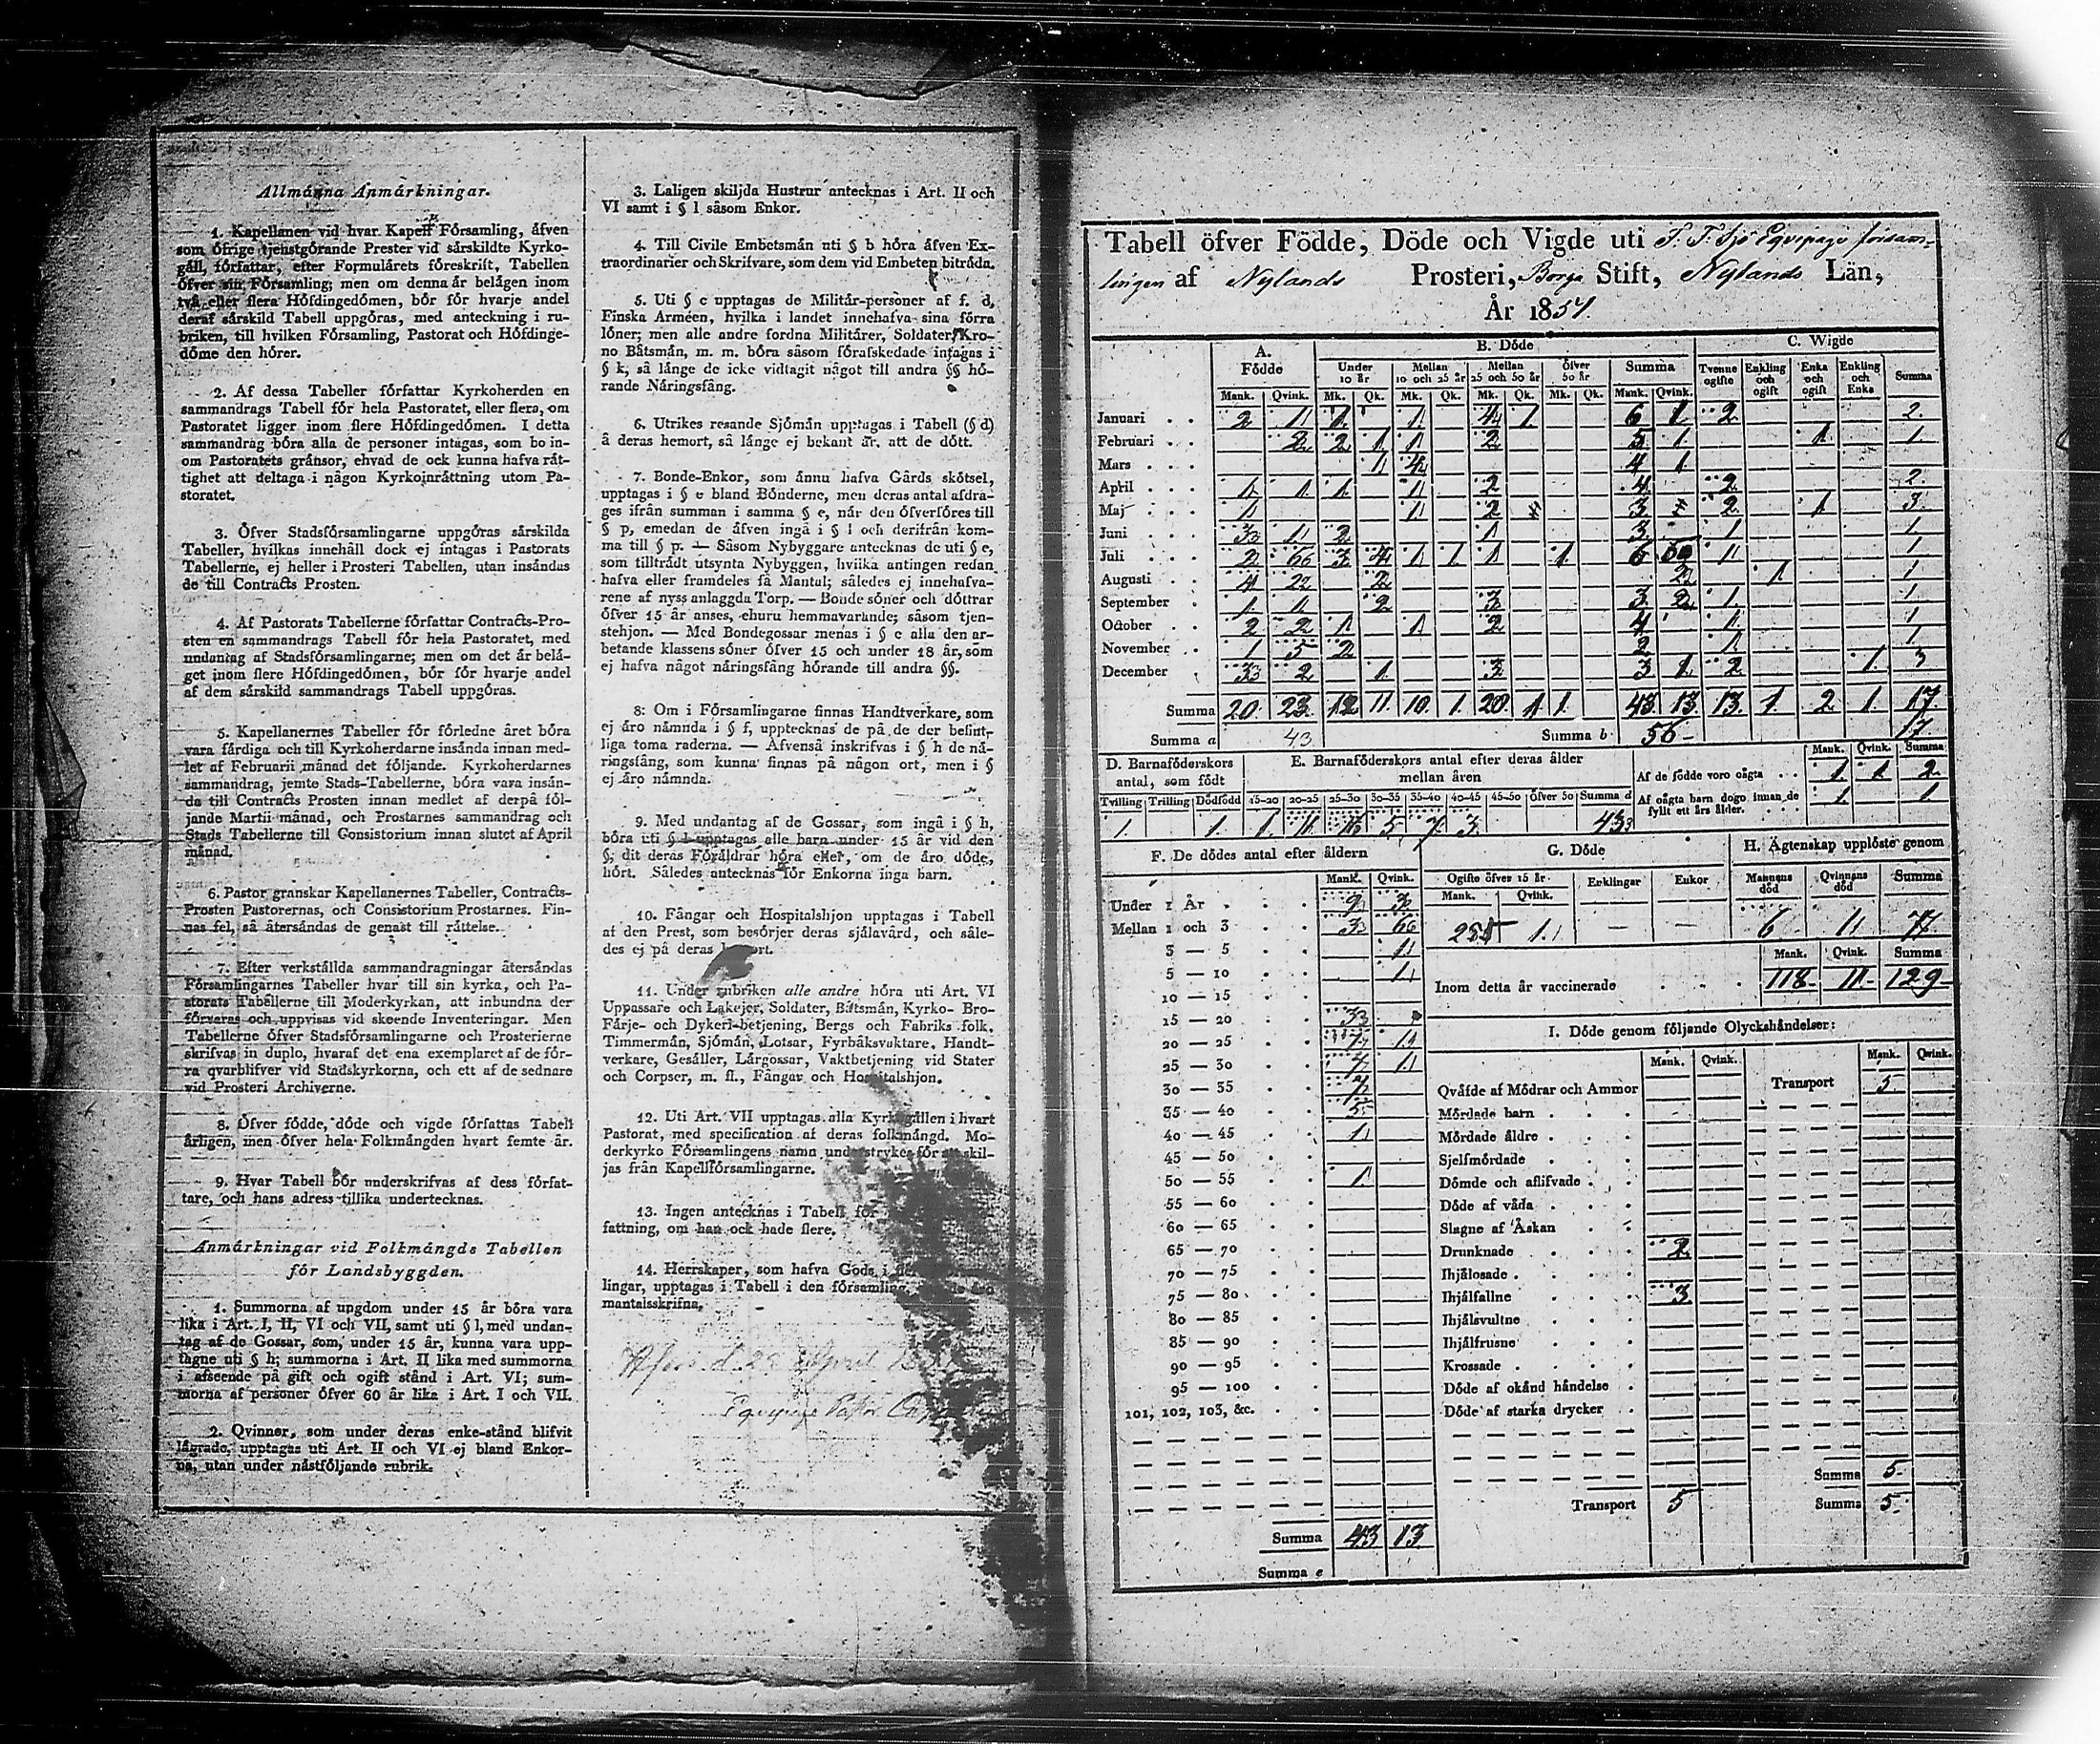 Allmänna Anmärkningar.
1. Kapellanen vid hvar Kapell Församling, äfven
som öfrige tjenstgörande Prester vid särskildte Kyrko-
gäll, författar, efter Formulärets föreskrift, Tabellen
öfver sin Församling; men om denna är belägen inom
två eller flera Höfdingedömen, bör för hvarje andel
deraf särskild Tabell uppgöras, med anteckning i ru-
briken, till hvilken Församling, Pastorat och Höfdinge-
döme den hörer.
2. Af dessa Tabeller författar Kyrkoherden en
sammandrags Tabell för hela Pastoratet, eller flera, om
Pastoratet ligger inom flere Höfdingedömen. I detta
sammandrag böra alla de personer intagas, som bo in-
om Pastoratets gränsor, ehvad de ock kunna hafva rät-
tighet att deltaga i någon Kyrkoinrättning utom Pa-
storatet.
3. Öfver Stadsförsamlingarne uppgöras särskilda
Tabeller, hvilkas innehåll dock ej intagas i Pastorats
Tabellerne, ej heller i Prosteri Tabellen, utan insändas
de till Contracts Prosten.
4. Af Pastorats Tabellerne författar Contracts-Pro-
sten en sammandrags Tabell för hela Pastoratet, med
undantag af Stadsförsamlingarne; men om det är belä-
get inom flere Höfdingedömen, bör för hvarje andel
af dem särskild sammandrags Tabell uppgöras.
5. Kapellanernes Tabeller för förledne året böra
vara färdiga och till Kyrkoherdarne insända innan med-
let af Februarii månad det följande. Kyrkoherdarnes
sammandrag, jemte Stads-Tabellerne, böra vara insän-
da till Contracts Prosten innan medlet af derpå föl-
jande Martii månad, och Prostarnes sammandrag och
Stads Tabellerne till Consistorium innan slutet af April
månad.
6. Pastor granskar Kapellanernes Tabeller, Contracts-
Prosten Pastorernas, och Consistorium Prostarnes. Fin-
nas fel, så återsändas de genast till rättelse.
7. Efter verkställda sammandragningar återsändas
Församlingarnes Tabeller hvar till sin kyrka, och Pa-
storats Tabellerne till Moderkyrkan, att inbundna der
förvaras och uppvisas vid skeende Inventeringar. Men
Tabellerne öfver Stadsförsamlingarne och Prosterierne
skrifvas in duplo, hvaraf det ena exemplaret af de för-
ra qvarblifver vid Stadskyrkorna, och ett af de sednare
vid Prosteri Archiverne.
8. Öfver födde, döde och vigde författas Tabell
årligen, men öfver hela Folkmängden hvart femte år.
9. Hvar Tabell bör underskrifvas af dess författ-
tare, och hans adress tillika undertecknas.
Anmärkningar vid Folkmängds Tabellen
för Landsbyggden.
1. Summorna af ungdom under 15 år böra vara
lika i Art. I, II, VI och VII, samt uti § l, med undan-
tag af de Gossar, som, under 15 år, kunna vara upp-
tagne uti § h; summorna i Art. II lika med summorna
i afseende på gift och ogift stånd i Art. VI; sum-
morna af personer öfver 60 år lika i Art. I och VII.
2. Qvinnor, som under deras enke-stånd blifvit
lägrade, upptagas uti Art. II och VI ej bland Enkor-
na, utan under nästföljande rubrik.
3. Laligen skiljda Hustrur antecknas i Art. II och
VI samt i § l såsom Enkor.
4. Till Civile Embetsmän uti § b höra äfven Ex-
traordinarier och Skrifvare, som dem vid Embeten biträda.
5. Uti § c upptagas de Militär-personer af f. d.
Finska Arméen, hvilka i landet innehafva sina förra
löner; men alle andre fordna Militärer, Soldater, Kro-
no Båtsmän, m. m. böra såsom förafskedade intagas i
§ k, så länge de icke vidtagit något till andra §§ hö-
rande Näringsfång.
6. Utrikes resande Sjömän upptagas i Tabell (§ d)
å deras hemort, så länge ej bekant är, att de dött.
7. Bonde-Enkor, som ännu hafva Gårds skötsel,
upptagas i § e bland Bönderne, men deras antal afdra-
ges ifrån summan i samma § e, når den öfverföres till
§ p, emedan de äfven ingå i § l och derifrån kom-
ma till § p. — Såsom Nybyggare antecknas de uti § e,
som tillträdt utsynta Nybyggen, hvilka antingen redan
hafva eller framdeles få Mantal; således ej innehafva-
rene af nyss anlaggda Torp. — Bonde söner och döttrar
öfver 15 år anses, ehuru hemmavarande, såsom tjen-
stehjon. — Med Bondegossar menas i § e alla den ar-
betande klassens söner öfver 15 och under 18 år, som
ej hafva något näringsfång hörande till andra §§.
8: Om i Församlingarne finnas Handtverkare, som
ej äro nämnda i § f, upptecknas de på de der befint-
liga toma raderna. — Äfvenså inskrifvas i § h de nä-
ringsfång, som kunna finnas på någon ort, men i §
ej äro nämnda.
9. Med undantag af de Gossar, som ingå i § h,
böra uti § l upptagas alle barn under 15 år vid den
§, dit deras Föräldrar höra eller, om de äro döde,
hört. Således antecknas för Enkorna inga barn.
10. Fångar och Hospitalshjon upptagas i Tabell
af den Prest, som besörjer deras själavård, och såle-
des ej på deras
11. Under rubriken alle andre höra uti Art. VI
Uppassare och Lakejer, Soldater, Båtsmän, Kyrko- Bro-
Färje- och Dykeri-betjening, Bergs och Fabriks folk,
Timmermän, Sjömän, Lotsar, Fyrbåksvaktare, Handt-
verkare, Gesäller, Lärgossar, Vaktbetjening vid Stater
och Corpser, m. fl., Fångar och Hospitalshjon.
12. Uti Art. VII upptagas alla Kyrkogällen i hvart
Pastorat, med specification af deras folkmängd. Mo-
derkyrko Församlingens namn understrykes för att skil-
jas från Kapellförsamlingarne.
13. Ingen antecknas i Tabell för
fattning, om han ock hade flere.
14. Herrskaper, som hafva Gods i
lingar, upptagas i Tabell i den församling,
mantalsskrifna.
April
Pastor
Tabell öfver Födde, Döde och Vigde uti Sjö Eqvipage församlingen
af Nylands Prosteri, Borgå Stift, Nylands Län,
År 1854.
A. Födde B. Döde C. Wigde
Under 10 år Mellan 10 och 25 år Mellan 25 och 50 år Öfver 50 år Summa Tvenne ogifte Enkling och ogift Enka och ogift Enkling och Enka Summa
Mank. Qvink. Mk. Qk. Mk. Qk. Mk. Qk. Mk. Qk. Mank. Qvink.
Januari 2 1 1 1 4 1 6 1 2 2.
Februari 2 2 1 1 2 5 1 1 1.
Mars 1 4 4 1
April 1 1 1 1 2 4 2 2.
Maj 1 1 2 3 2 1 3.
Juni 3 1 2 1 3 1 1
Juli 2 6 3 4 1 1 1 1 6 1 1
Augusti 4 2 2 2 1 1
September 1 1 2 3 3 2 1 1
October 2 2 1 1 2 4 1 1
November 1 5 2 2 1 1
December 3 2 1 3 3 1 2 1 3
Summa 20 23 12 11 10 1 20 1 1 43 13 13 1 2 1 17
Summa a 43 Summa b 56 17
D. Barnaföderskors antal, som födt
E. Barnaföderskors antal efter deras ålder mellan åren
Tvilling Trilling Dödfödd 15-20 20-25 25-30 30-35 35-40 40-45 45-50 Öfver 50 Summa d
1 1 1 11 16 5 7 3 43
Mank. Qvink. Summa
Af de födde voro oägta 1 1 2
Af oägta barn dogo innan de fyllt ett års ålder. 1 1
F. De dödes antal efter åldern
Mank. Qvink.
Under 1 År 9 3
Mellan 1 och 3 3 6
3 — 5 1
5 — 10 1
10 — 15
15 — 20 3
20 — 25 7 1
25 — 30 7 1
30 — 35 7
35 — 40 5
40 — 45 1
45 — 50
50 — 55 1
55 — 60
60 — 65
65 — 70
70 — 75
75 — 80
80 — 85
85 — 90
90 — 95
95 — 100
101, 102, 103, &c.
Summa 43 13
Summa e
G. Döde
Ogifte öfver 15 år Enklingar Enkor
Mank. Qvink.
1 — —
H. Ägtenskap upplöste genom
Mannens död Qvinnans död Summa
6 1 7
Mank. Qvink. Summa
Inom detta år vaccinerade 118 11 129
I. Döde genom följande Olyckshändelser:
Mank. Qvink. Mank. Qvink.
Qväfde af Mödrar och Ammor Transport 5
Mördade barn
Mördade äldre
Sjelfmördade
Dömde och aflifvade
Döde af våda
Slagne af Åskan
Drunknade 2
Ihjälosade
Ihjälfallne 3
Ihjälsvultne
Ihjälfrusne
Krossade
Döde af okänd händelse
Döde af starka drycker
Summa 5
Transport 5 Summa 5